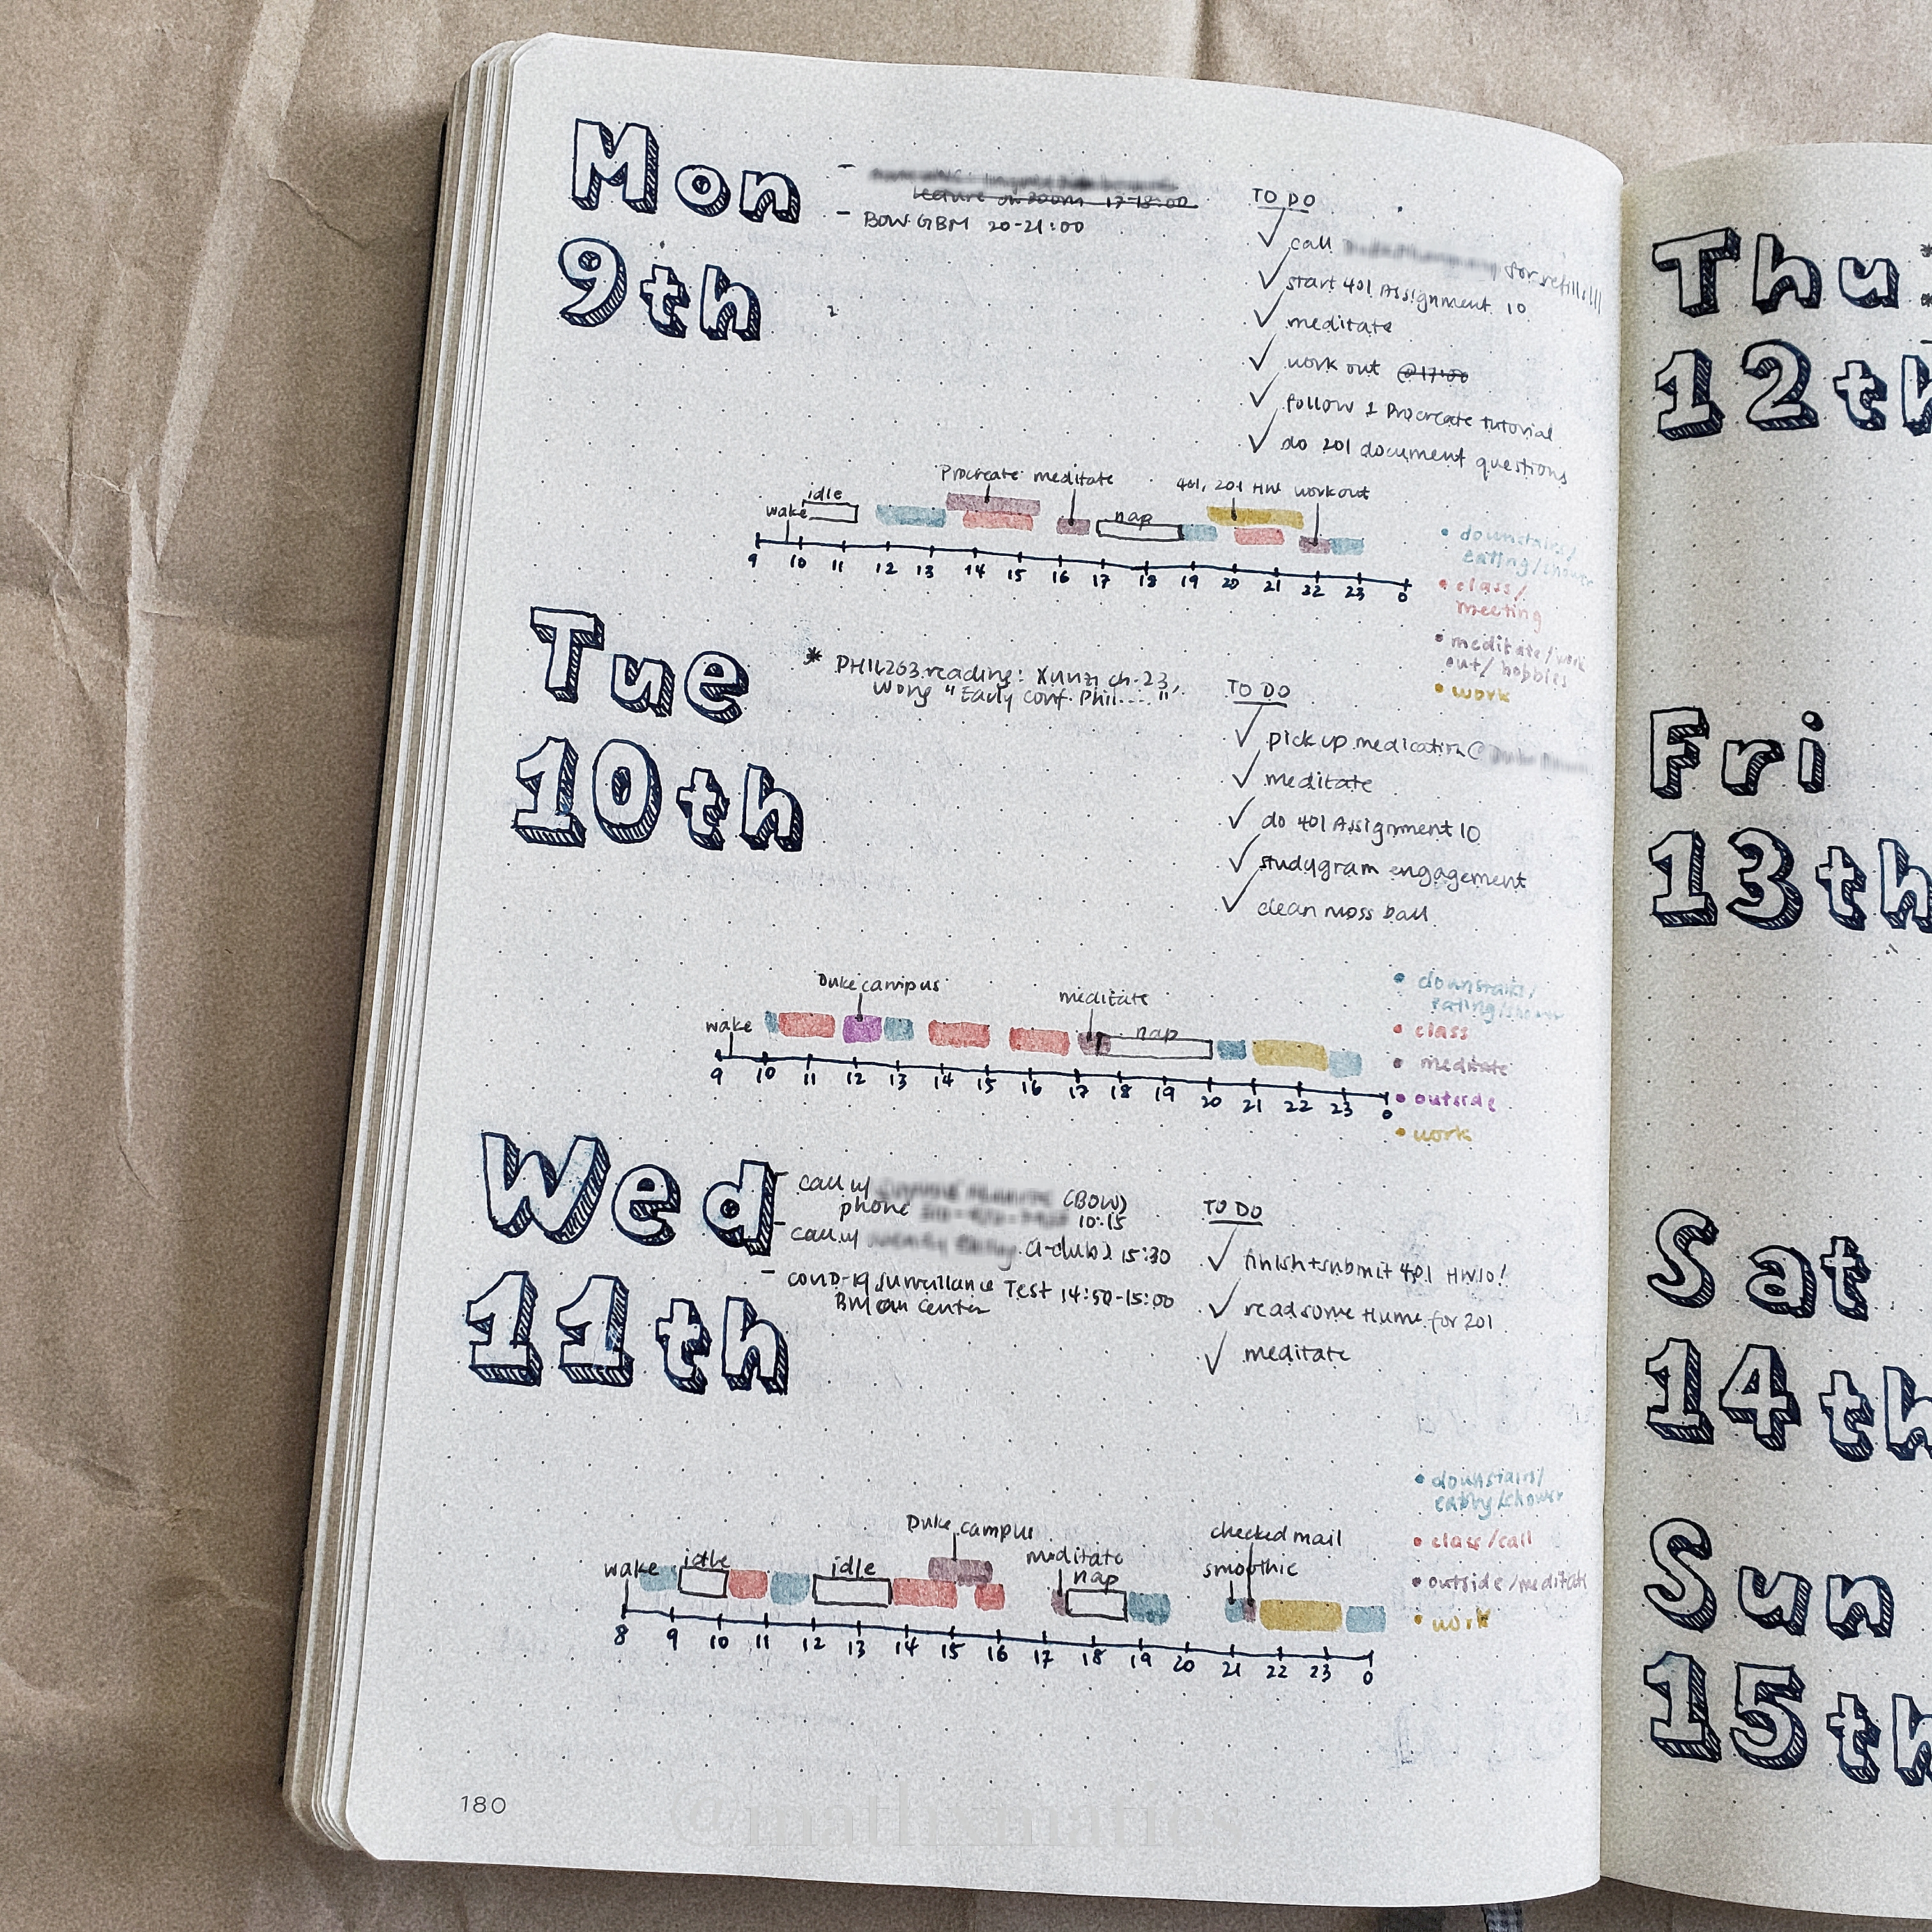 Mon
9th
-
lecture on zoom 17-18:00
- BOW GBM 20-21:00
TO DO
✓ call for refill!!!
✓ start 401 Assignment 10
✓ meditate
✓ work out @17:00
✓ follow 1 Procreate tutorial
✓ do 201 document questions
Procreate meditate 401, 201 HW workout
wake idle nap
9 10 11 12 13 14 15 16 17 18 19 20 21 22 23 0
• downstairs/
eating/shower
• class/
meeting
• meditate/work
out/hobbies
• work
Tue
10th
* PHIL263 reading: Xunzi ch. 23,
Wong "Early Conf. Phil...."
TO DO
✓ pick up medication @
✓ meditate
✓ do 401 Assignment 10
✓ studygram engagement
✓ clean moss ball
Duke campus meditate
wake nap
9 10 11 12 13 14 15 16 17 18 19 20 21 22 23 0
• downstairs/
eating/shower
• class
• meditate
• outside
• work
Wed
11th
- call w/ (BOW)
phone 10:15
- call w/ 15:30
- COVID-19 Surveillance Test 14:50-15:00
Center
TO DO
✓ finish+submit 401 HW10!
✓ read some Hume for 201
✓ meditate
Duke campus checked mail
wake idle idle meditate nap smoothie
8 9 10 11 12 13 14 15 16 17 18 19 20 21 22 23 0
• downstairs/
eating/shower
• class/call
• outside/meditate
• work
180
Thu
12th
Fri
13th
Sat
14th
Sun
15th